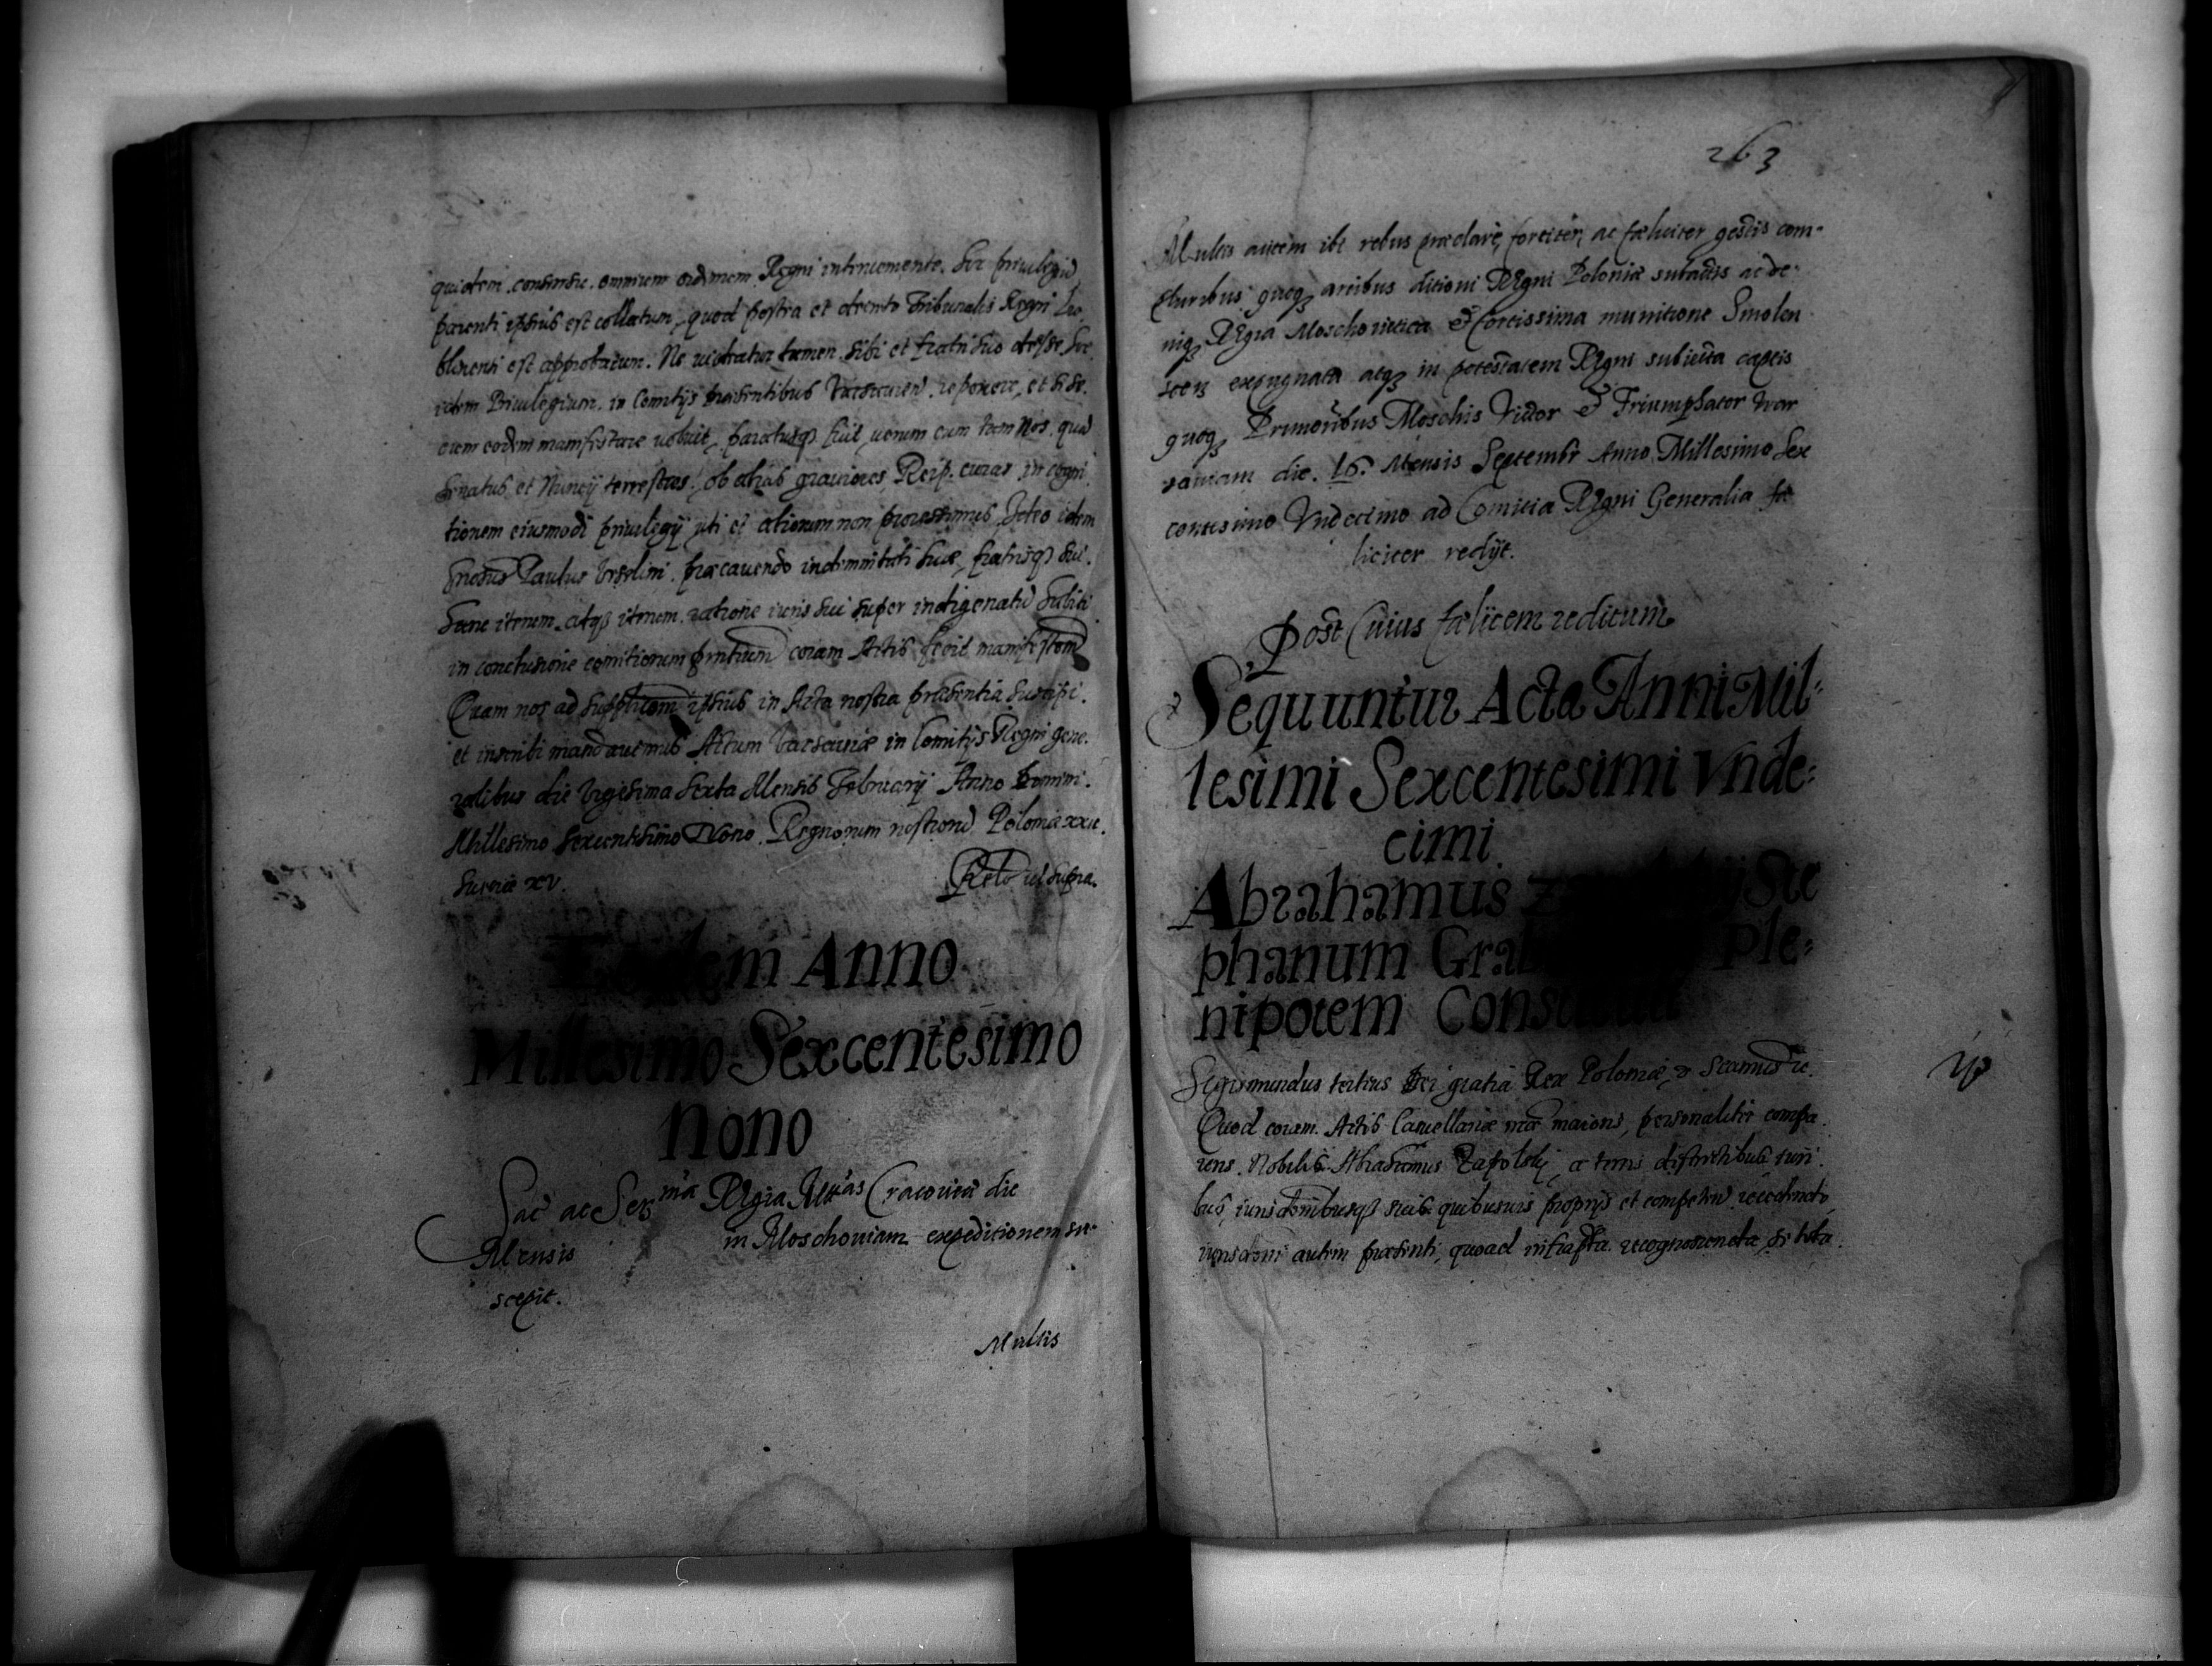 quidem consensu omnium ordinum Regni interveniente. Sue privilegiũ
parenti ipsius est collatum, quod postra et decreto Tribunalis Regni Lu
blinensi est approbatum. Ne videatur tamen sibi et fratri suo deesse Sue
idem Privilegium in Comitijs praesentibus Varsavien̄ reponere, et
eodem manifestare voluit, paratusq; fuit, verum cum tam Nos, quā
Senatus et Nuncij terrestres, ob alias graviores Reip. curas in cogni
tionem eiusmodi privilegij uti et aliorum non processimus. Ideo idem
Paulus Orsolini praecavendo indemnitati suae, fratrisq; sui
iterum atq; iterum ratione iuris sui super indigenatū
in conclusione comitiorum pn̄tium coram Actis fecit manifestōm
Quam nos ad supplicōm ipsius in Acta nostra praesentia suscipi
et inscribi mandavimus. Actum Varsaviae in Comitijs Regni gene
ralibus die Vigesima Sexta Mensis February Anno Domini
Millesimo Sexcentesimo Nono. Regnorum nostrorū Poloniae xxii.
Sueciae xv.
Relō ut supra.
Eodem Anno
Millesimo Sexcentesimo
nono
Sac̄ ac Ser^ma Rgia M^tas Cracovia die
Mensis in Moschoviam expeditionem su-
scepit.
Multis
263
Multis autem ibi rebus praeclarè, fortiter, ac faeliciter gestis com-
pluribus quoq; arcibus ditioni Rgni Poloniae subactis ac de-
niq; Rgia Moschovitica et fortissima munitione Smolen
scen expugnata atq; in potestatem Rgni subiecta captis
quoq; Primoribus Moschis Victor et Triumphator Var
saviam die. 16. Mensis Septembr̄ Anno Millesimo Sex
centesimo Vndecimo ad Comitia Rgni Generalia fae
liciter redijt.
Post Cuius faelicem reditum
Sequuntur Acta Anni Mil-
lesimi Sexcentesimi Vnde-
cimi
Abrahamus Ste
phanum Ple-
nipotem
Sigismundus tertius Dei gratia Rex Poloniae, Ic.
Quod coram Actis Cancellariae nr̄ae maioris, personaliter compa
rens Nobilis Abrahamus Zapolskj, a terris districtibus iuri
bus, iurisdōnibusq; suis quibusvis proprijs et competen̄ recedendo
iurisdōni autem praesenti, quoad infrascr̄pta recognoscenda, se tota